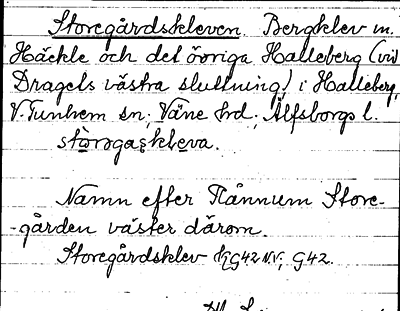 Storegårdskleven Bergklev m.
Häckle och det övriga Halleberg (vid
Dragels västra sluttning) i Halleberg,
V. Tunhem sn, Väne hd, Älfsborgs l.
stòrəgaşkleva.
Namn efter Flännum Store-
-gården väster därom.
Storegårdsklev G42 N.V., G42.